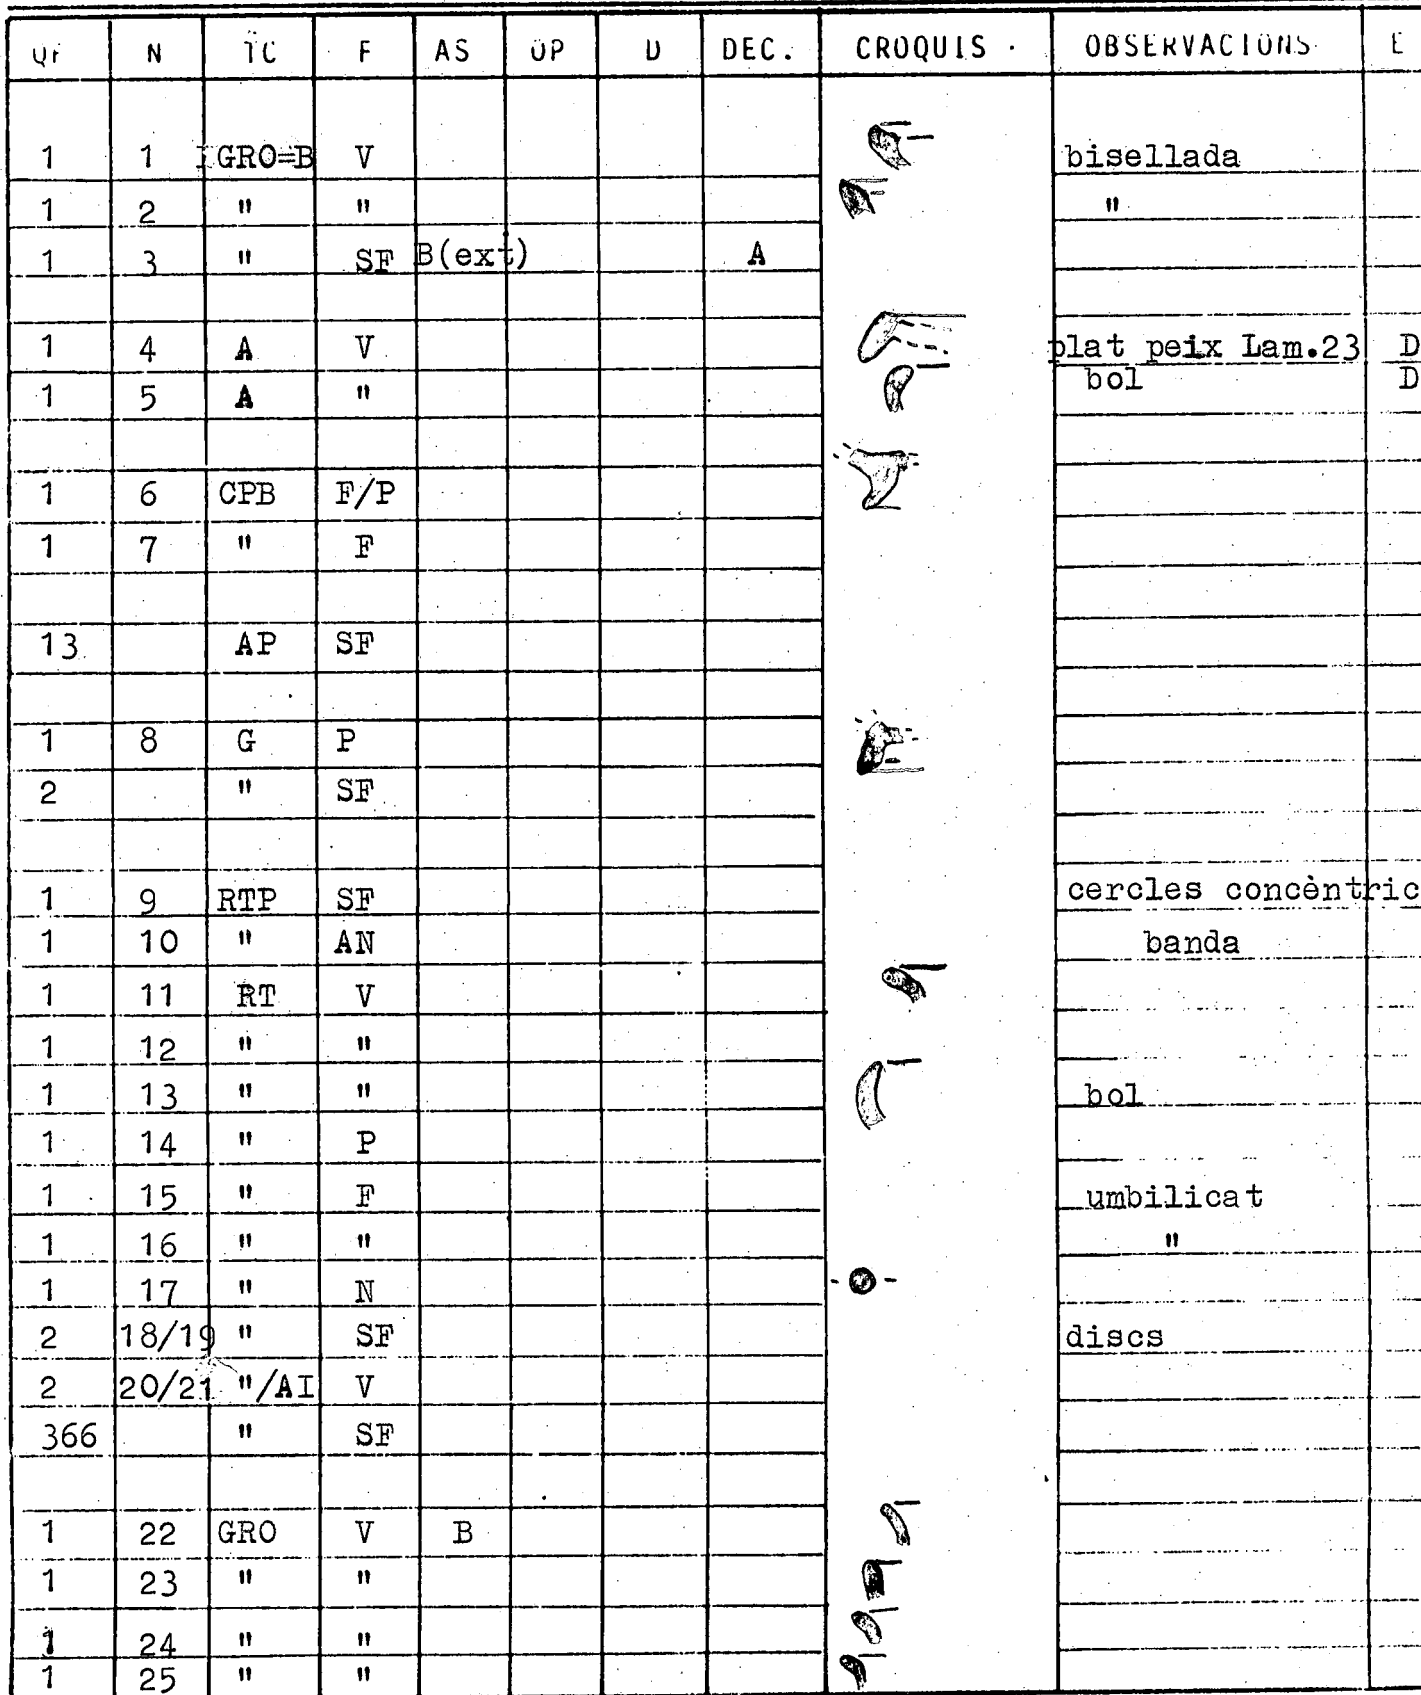 QF N TC F AS OP D DEC. CROQUIS OBSERVACIONS E
1 1 GRO=B V bisellada
1 2 " " "
1 3 " SF B(ext) A
1 4 A V plat peix Lam.23 D
1 5 A " bol D
1 6 CPB F/P
1 7 " F
13 AP SF
1 8 G P
2 " SF
1 9 RTP SF cercles concèntric
1 10 " AN banda
1 11 RT V
1 12 " "
1 13 " " bol
1 14 " P
1 15 " F umbilicat
1 16 " " "
1 17 " N
2 18/19 " SF discs
2 20/21 "/AI V
366 " SF
1 22 GRO V B
1 23 " "
1 24 " "
1 25 " "